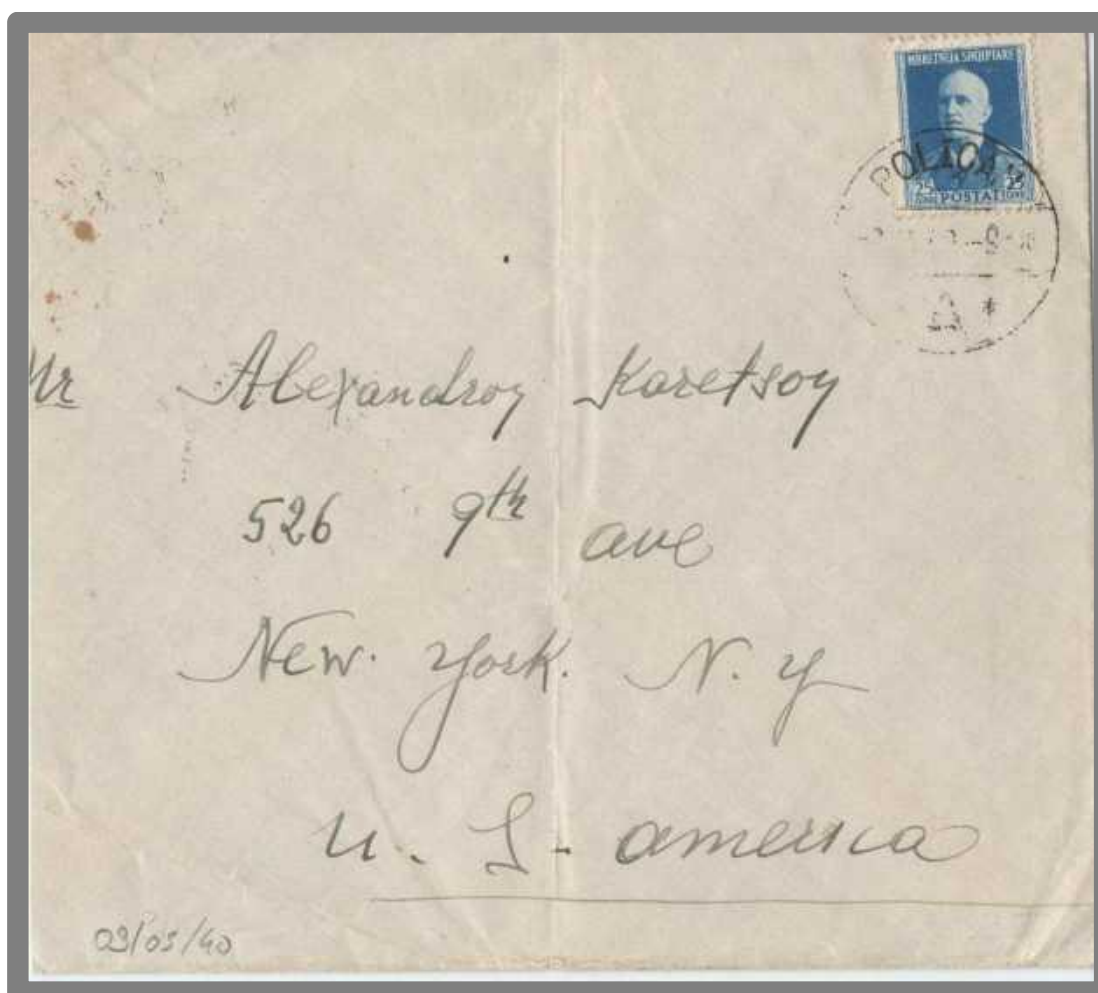 MBRETNIJA SHQIPTARE
25 POSTAT 25
POLIÇAN
Mr Alexandroy Karetsoy
526 9th ave
New. York. N. Y
U. S. america
09/05/40